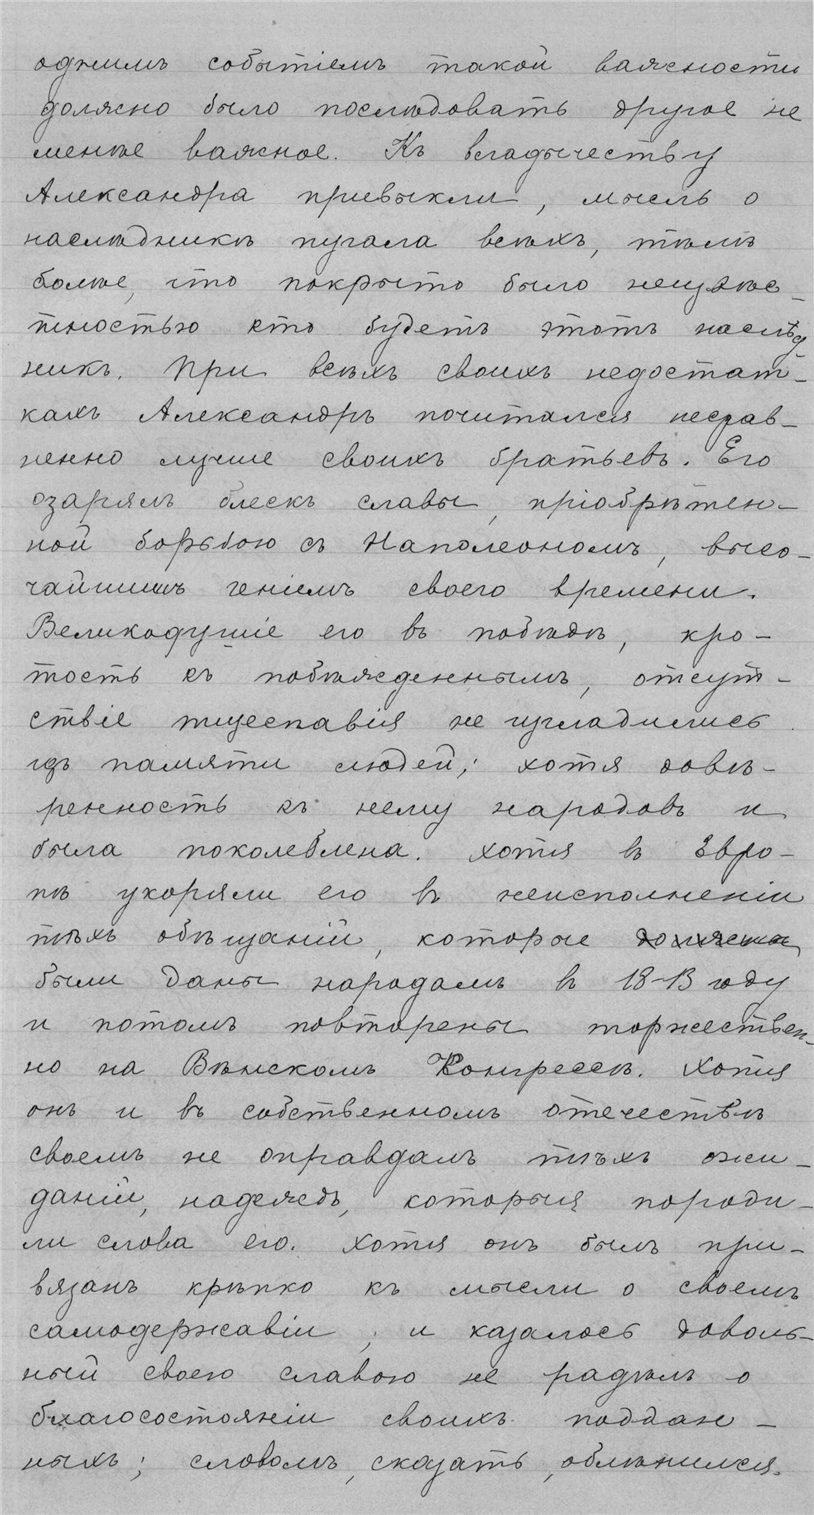 однимъ событіемъ такой важности
должно было послѣдовать другое не
менѣе важное. Къ владычеству
Александра привыкли, мысль о
наслѣдникѣ пугала всѣхъ, тѣмъ
болѣе, что покрыто было неизвѣс-
тностью кто будетъ этотъ наслѣд-
никъ. При всѣхъ своихъ недостат-
кахъ Александръ почитался несрав-
ненно лучше своихъ братьевъ. Его
озарялъ блескъ славы, пріобрѣтен-
ной борьбою съ Наполеономъ, высо-
чайшимъ геніемъ своего времени.
Великодушіе его въ побѣдѣ, кро-
тость къ побѣжденнымъ, отсут-
ствіе тщеславія не изгладились
изъ памяти людей; хотя довѣ-
ренность къ нему народовъ и
была поколеблена. Хотя въ Евро-
пѣ укоряли его въ неисполненіи
тѣхъ обѣщаній, которые
были даны народамъ въ 18-13 году
и потомъ повторены торжествен-
но на Вѣнскомъ Конгрессѣ. Хотя
онъ и въ собственномъ отечествѣ
своемъ не оправдалъ тѣхъ ожи-
даній, надеждъ, которыя породи-
ли слова его. Хотя онъ былъ при-
вязанъ крѣпко къ мысли о своемъ
самодержавіи; и казалось доволь-
ный своею славою не радѣлъ о
благосостояніи своихъ поддан-
ныхъ; словомъ, сказать, облѣнился.